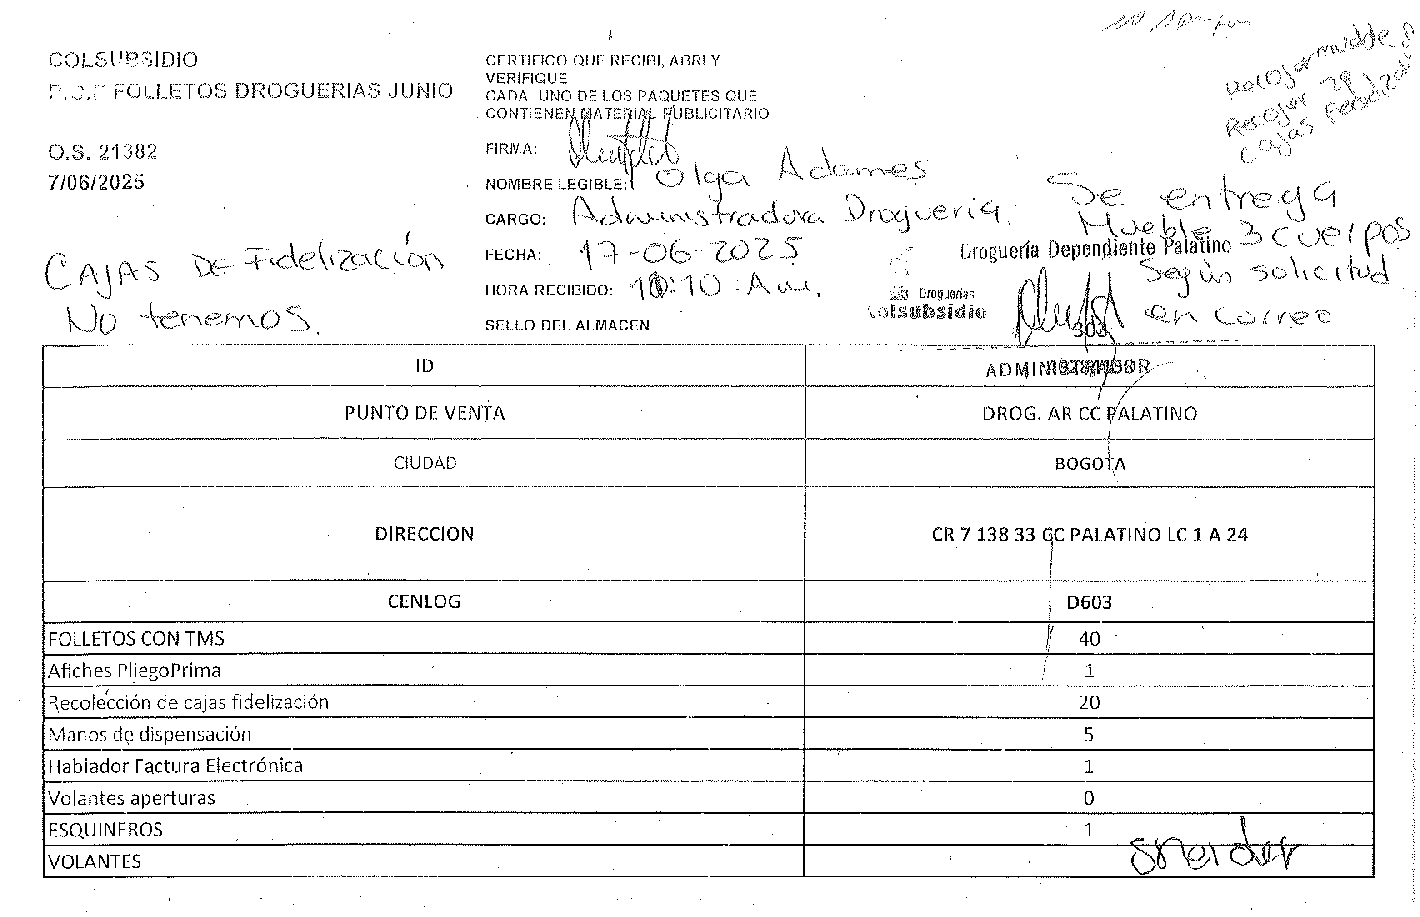 COLSUBSIDIO
P.O.P FOLLETOS DROGUERIAS JUNIO
O.S. 21382
7/06/2025
CAJAS DE Fidelización
No tenemos.
CERTIFICO QUE RECIBI, ABRI Y
VERIFIQUE
CADA UNO DE LOS PAQUETES QUE
CONTIENEN MATERIAL PUBLICITARIO
FIRMA:
NOMBRE LEGIBLE: Olga Adames
CARGO: Administradora Droguería.
FECHA: 17-06-2025
HORA RECIBIDO: 10:10 Am.
SELLO DEL ALMACEN
Recoger mueble
Recoger 29
Cajas
Se entrega
Mueble 3 cuerpos
Según solicitud
en correo
Droguería Dependiente Palatino
Droguerías
Colsubsidio
303
ID ADMINISTRADOR
PUNTO DE VENTA DROG. AR CC PALATINO
CIUDAD BOGOTA
DIRECCION CR 7 138 33 CC PALATINO LC 1 A 24
CENLOG D603
FOLLETOS CON TMS 40
Afiches PliegoPrima 1
Recolección de cajas fidelización 20
Manos de dispensación 5
Hablador Factura Electrónica 1
Volantes aperturas 0
ESQUINEROS 1
VOLANTES
Sneider